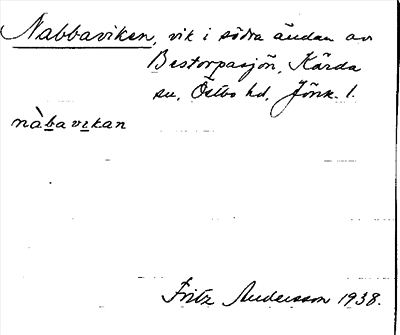 Nabbaviken, vik i södra ändan av
Bestorpasjön, Kärda
sn, Östbo hd, Jönk. l.
nàbavikan
Fritz Andersson 1938.